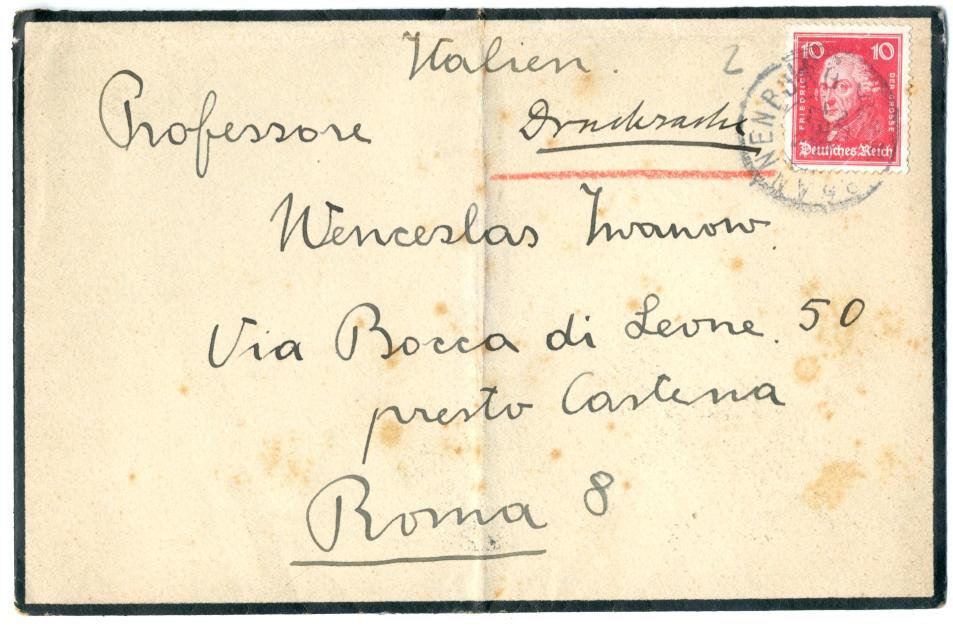 Italien. 2
10 10
FRIEDRICH DER GROSSE
Deutsches Reich
Professore Drucksache
Wenceslas Iwanow
Via Bocca di Leone. 50
presto Castena
Roma 8